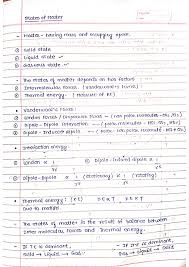 States of Matter
- Matter - having mass and occupying space.
① Solid state
② Liquid state
③ Gaseous state
- The states of matter depends on two factors
① Intermolecular forces. (Vanderwaal's forces)
② Thermal energy. (Motion of KE)
- Vanderwaal's forces :
① London forces / Dispersion forces - (non polar molecules
② Dipole - Dipole interaction - (polar molecules
③ Dipole - induced dipole - (polar - non polar molecules
- Interaction energy :
① London ∝ 1/r⁶
② Dipole - induced dipole ∝ 1/r⁶
③ Dipole - dipole ∝ 1/r³ (stationary) ∝ 1/r⁶ (rotating)
- Thermal energy : (KE)
Due to motion
- The states of matter is the result of balance between
Inter molecular forces and Thermal energy.
- If T.E is dominant,
Solid → Liquid → Gas
- If IF is dominant,
Gas → Liquid → Solid